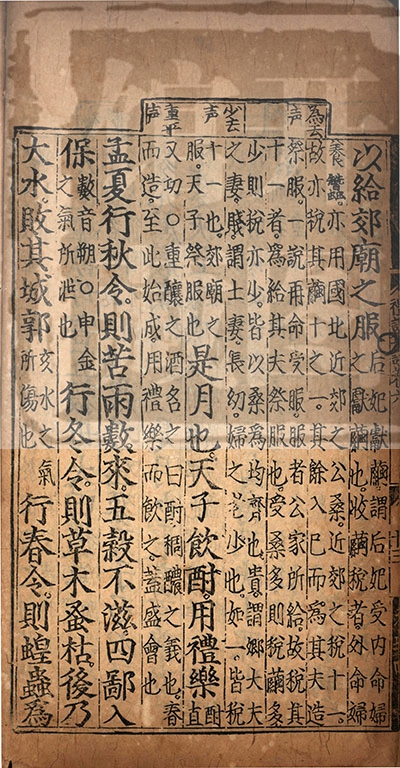 為去
声
少去
声
重平
声
以給郊廟之服后妃獻繭謂后妃受內命婦
之獻繭也收繭稅者外命婦
養蠶亦用國北近郊之公桑。近郊之稅十一
故亦稅其繭十之一。其餘入已而為其夫造
祭服。一說再命受服。服者公家所給。故稅其
十一者。為給其夫祭服也。受桑多則稅繭多
少則稅亦少。皆以桑為均齊也。貴謂鄉大夫
之妻。賤謂士妻。長幼。婦之老少也。如一。皆稅
十一也。郊廟之
服。天子祭服也
是月也。天子飲酎。用禮樂酎直
又切○重釀之酒名之曰酎。稠醲之義也。春
而造。至此始成。用禮樂而飲之。蓋盛會也
孟夏行秋令。則苦雨數來。五穀不滋。四鄙入
保數音朔○申金
之氣所泄也
行冬令。則草木蚤枯。後乃
大水。敗其城郭亥水之氣
所傷也
行春令。則蝗蟲為